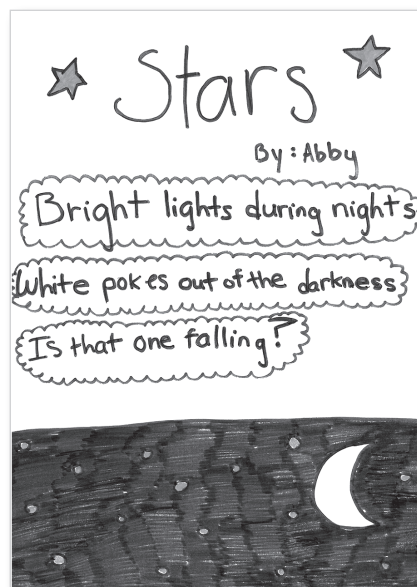 Stars
By: Abby
Bright lights during nights
White pokes out of the darkness
Is that one falling?